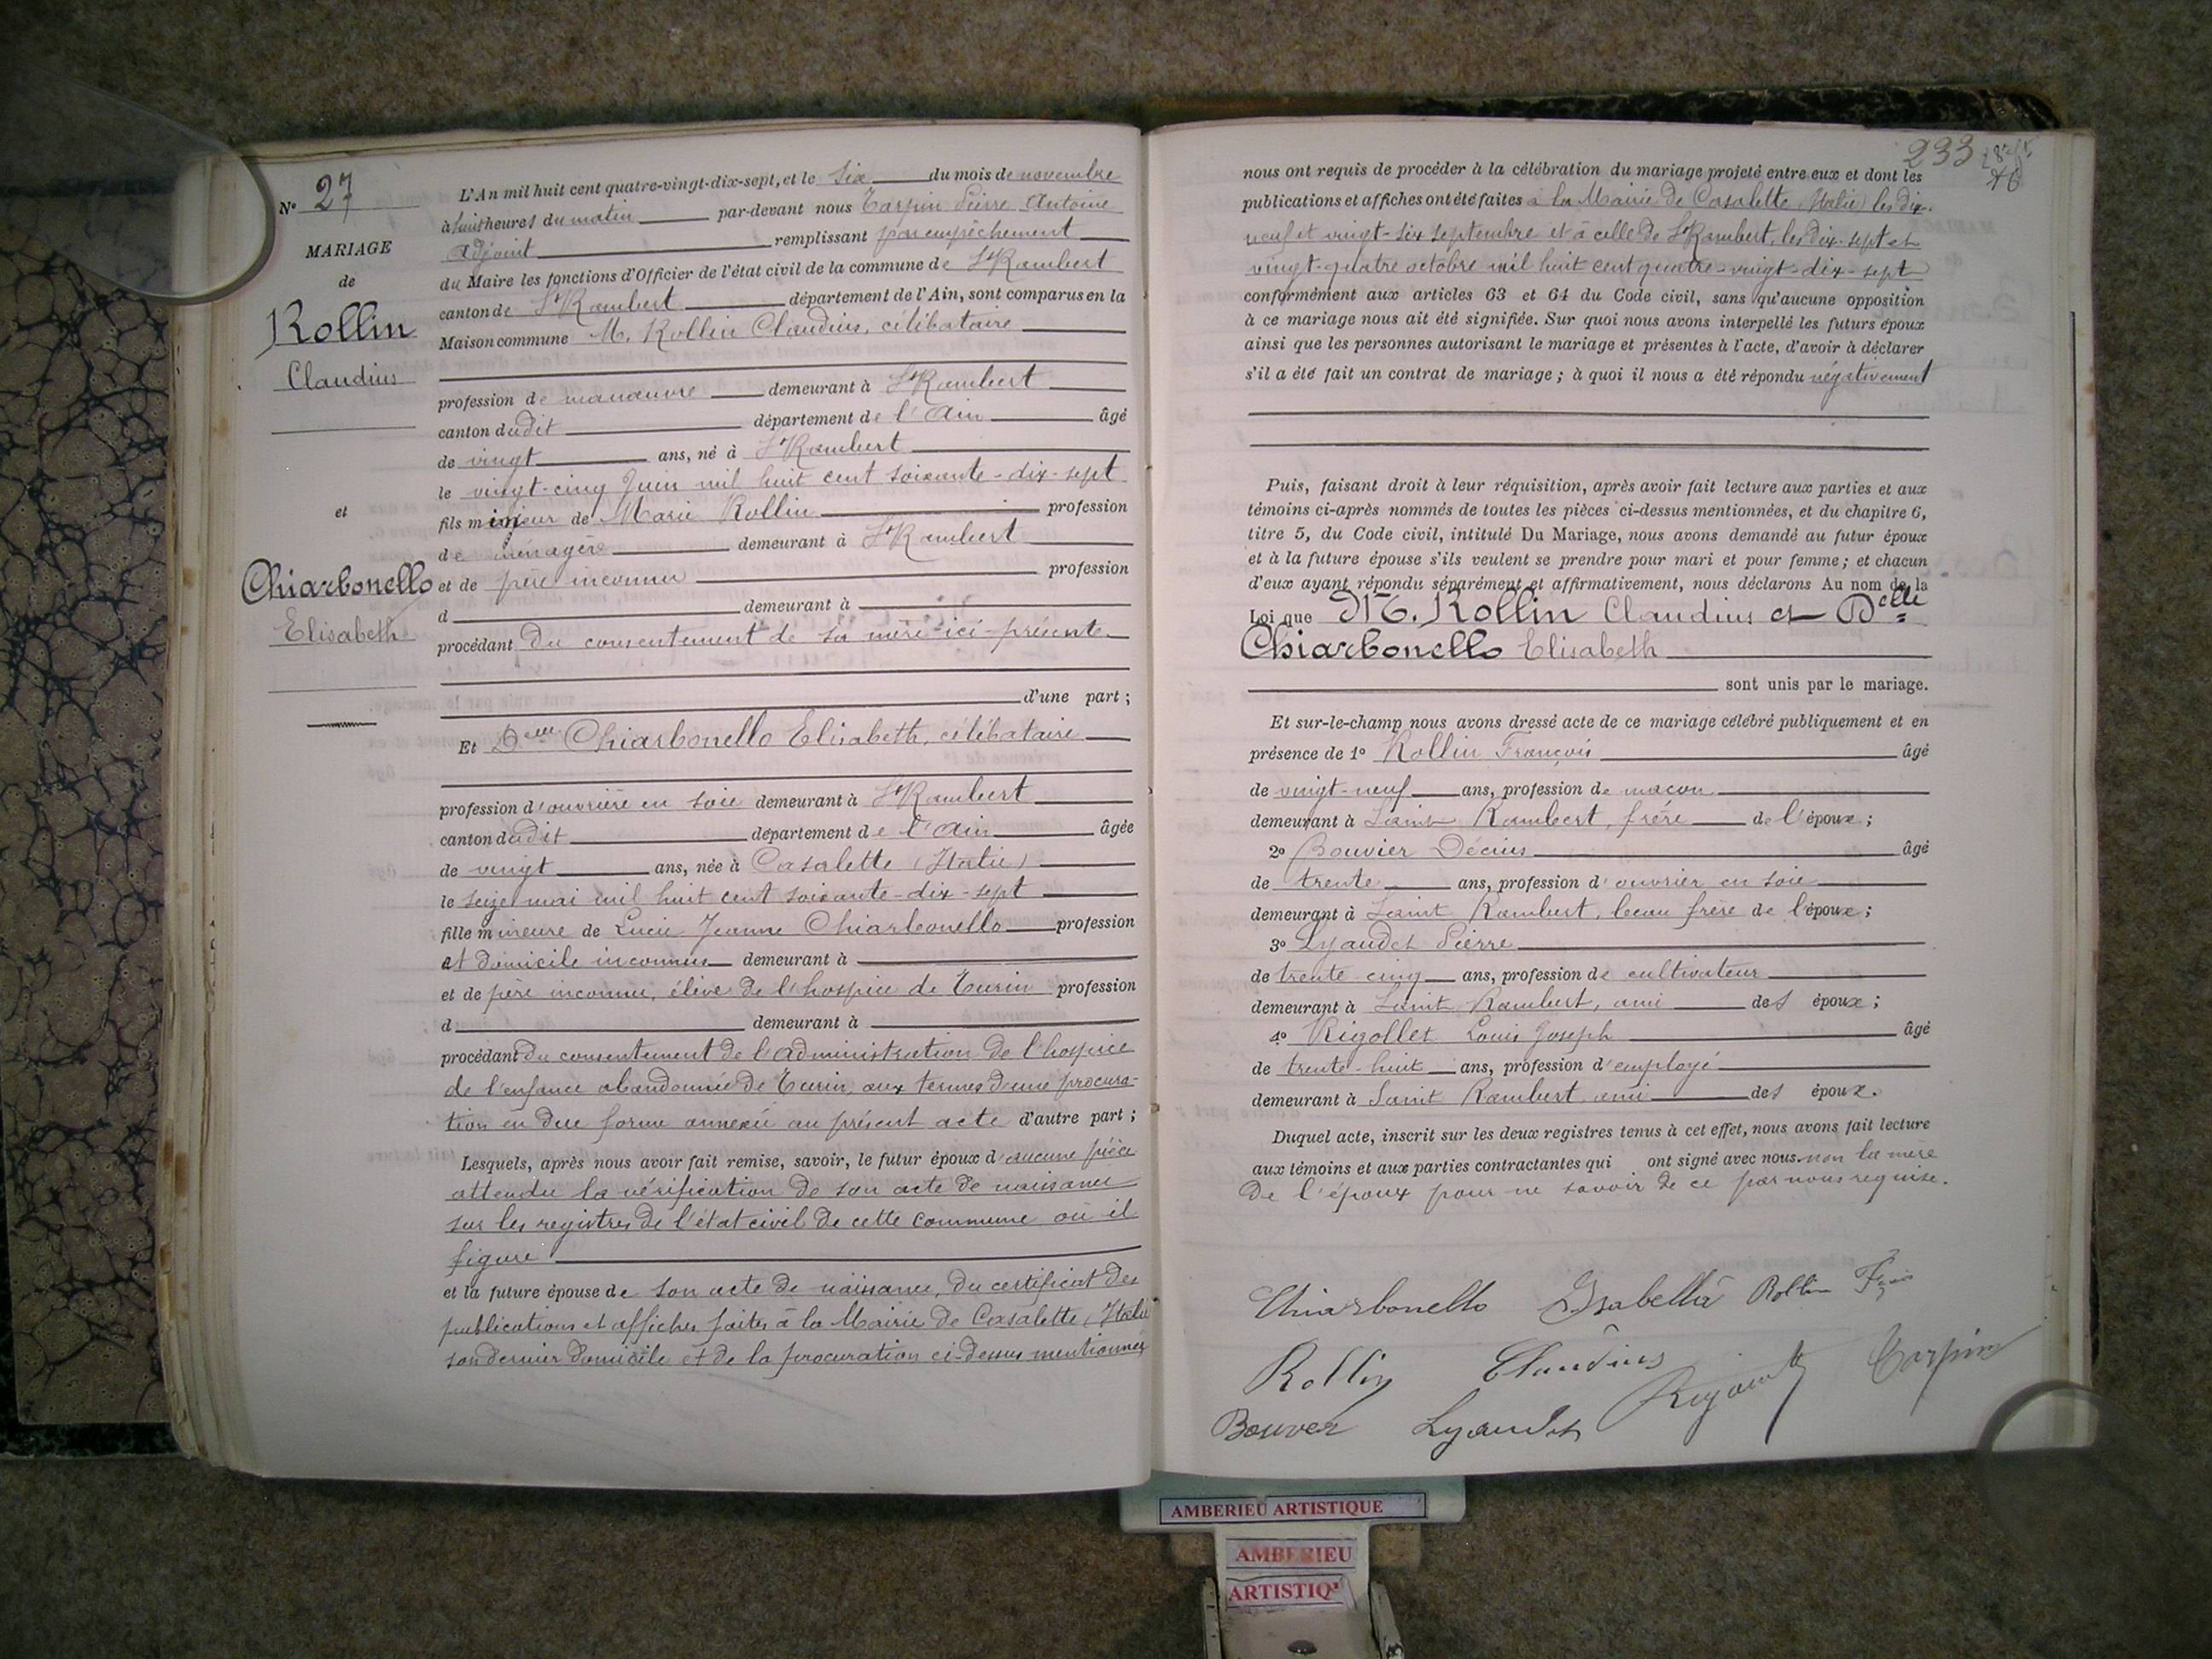 N° 27
MARIAGE
de
Rollin
Claudius
et
Chiarbonello
Elisabeth
L'An mil huit cent quatre-vingt-dix-sept, et le six du mois de novembre
à huit heures du matin par-devant nous Tarpin Pierre Antoine
adjoint remplissant par empêchement
du Maire les fonctions d'Officier de l'état civil de la commune de St Rambert
canton de St Rambert département de l'Ain, sont comparus en la
Maison commune M. Rollin Claudius, célibataire
profession de manœuvre demeurant à St Rambert
canton dudit département de l'Ain âgé
de vingt ans, né à St Rambert
le vingt-cinq Juin mil huit cent soixante-dix-sept
fils mineur de Marie Rollin profession
de ménagère demeurant à St Rambert
et de père inconnu profession
d demeurant à
procédant du consentement de sa mère ici-présente
d'une part ;
Et Delle Chiarbonello Elisabeth, célibataire
profession d'ouvrière en soie demeurant à St Rambert
canton dudit département de l'Ain âgée
de vingt ans, née à Casalette (Italie)
le seize mai mil huit cent soixante-dix-sept
fille mineure de Lucie Jeanne Chiarbonello profession
et domicile inconnus demeurant à
et de père inconnu, élève de l'hospice de Turin profession
d demeurant à
procédant du consentement de l'administration de l'hospice
de l'enfance abandonnée de Turin, aux termes d'une procura-
tion en due forme annexée au présent acte d'autre part ;
Lesquels, après nous avoir fait remise, savoir, le futur époux d'aucune pièce
attendu la vérification de son acte de naissance
sur les registres de l'état civil de cette commune où il
figure
et la future épouse de son acte de naissance, du certificat des
publications et affiches faites à la Mairie de Casalette (Italie
son dernier domicile et de la procuration ci-dessus mentionnée
233
nous ont requis de procéder à la célébration du mariage projeté entre eux et dont les
publications et affiches ont été faites à la Mairie de Casalette (Italie) les dix-
neuf et vingt-six septembre et à celle de St Rambert, les dix-sept et
vingt-quatre octobre mil huit cent quatre-vingt-dix-sept
conformément aux articles 63 et 64 du Code civil, sans qu'aucune opposition
à ce mariage nous ait été signifiée. Sur quoi nous avons interpellé les futurs époux
ainsi que les personnes autorisant le mariage et présentes à l'acte, d'avoir à déclarer
s'il a été fait un contrat de mariage ; à quoi il nous a été répondu négativement
Puis, faisant droit à leur réquisition, après avoir fait lecture aux parties et aux
témoins ci-après nommés de toutes les pièces ci-dessus mentionnées, et du chapitre 6,
titre 5, du Code civil, intitulé Du Mariage, nous avons demandé au futur époux
et à la future épouse s'ils veulent se prendre pour mari et pour femme ; et chacun
d'eux ayant répondu séparément et affirmativement, nous déclarons Au nom de la
Loi que M. Rollin Claudius et Delle
Chiarbonello Elisabeth
sont unis par le mariage.
Et sur-le-champ nous avons dressé acte de ce mariage célébré publiquement et en
présence de 1° Rollin François âgé
de vingt-neuf ans, profession de maçon
demeurant à Saint Rambert, frère de l'époux ;
2° Bouvier Décius âgé
de trente ans, profession d'ouvrier en soie
demeurant à Saint Rambert, beau frère de l'époux ;
3° Lyaudet Pierre
de trente cinq ans, profession de cultivateur
demeurant à Saint Rambert, ami des époux ;
4° Rigollet Louis Joseph âgé
de trente-huit ans, profession d'employé
demeurant à Saint Rambert ami des époux.
Duquel acte, inscrit sur les deux registres tenus à cet effet, nous avons fait lecture
aux témoins et aux parties contractantes qui ont signé avec nous non la mère
de l'époux pour ne savoir de ce par nous requise.
Chiarbonello Isabella Rollin Fçois
Rollin Claudius Tarpin
Bouvier Lyaudet
AMBERIEU ARTISTIQUE
AMBERIEU
ARTISTIQ